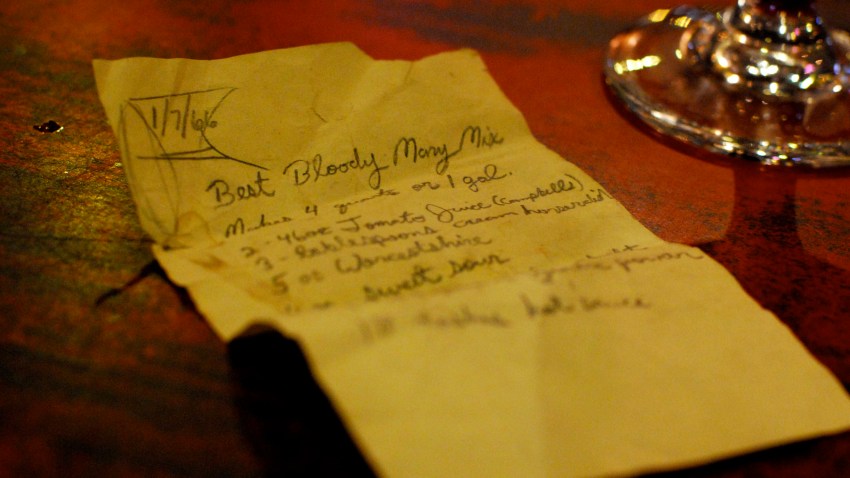 1/7/66
Best Bloody Mary Mix
Makes 4 quarts or 1 gal.
2 - 46oz Tomato Juice (Campbells)
3 - tablespoons cream horseradish
5 oz Worcestshire
sweet sour
hot sauce